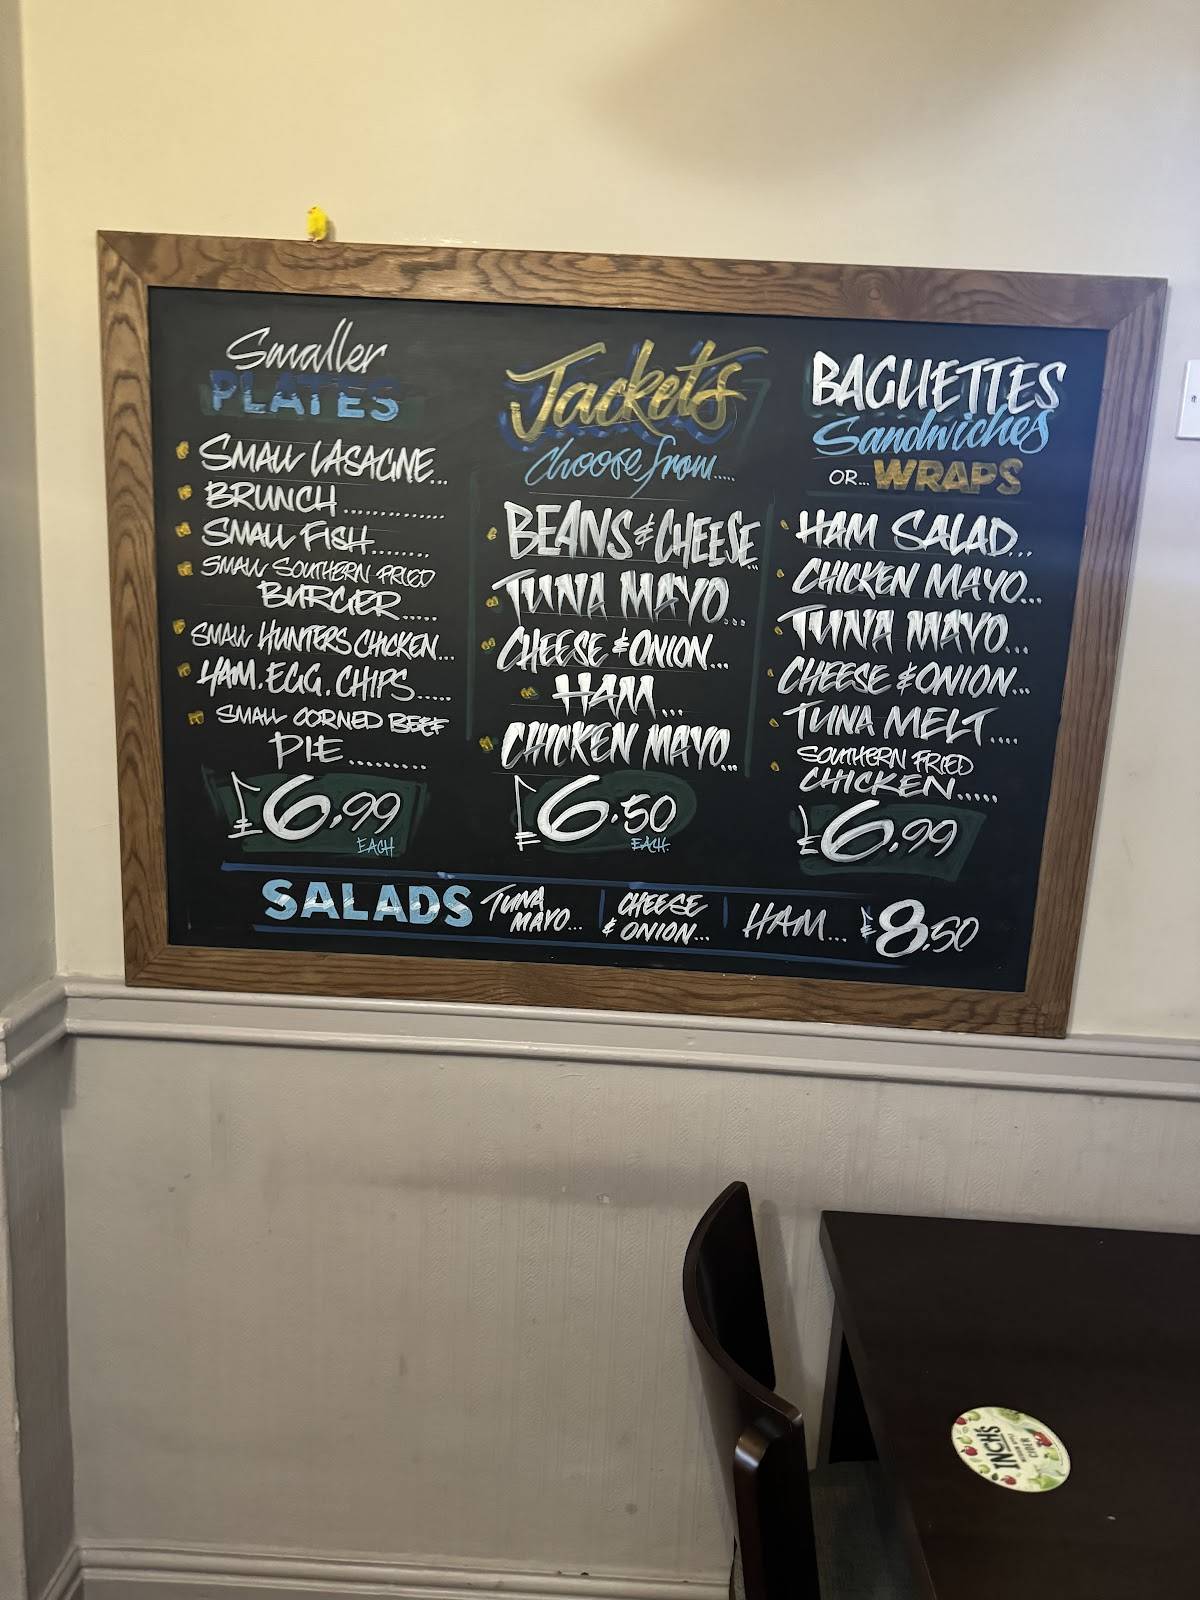 Smaller
PLATES
SMALL LASAGNE...
BRUNCH..............
SMALL FISH........
SMALL SOUTHERN FRIED
BURGER.....
SMALL HUNTERS CHICKEN...
HAM. EGG. CHIPS.....
SMALL CORNED BEEF
PIE.........
£6.99
EACH
Jackets
Choose from.....
BEANS & CHEESE...
TUNA MAYO...
CHEESE & ONION...
HAM...
CHICKEN MAYO...
£6.50
EACH.
BAGUETTES
Sandwiches
OR... WRAPS
HAM SALAD...
CHICKEN MAYO...
TUNA MAYO...
CHEESE & ONION...
TUNA MELT....
SOUTHERN FRIED
CHICKEN.....
£6.99
SALADS TUNA MAYO... CHEESE & ONION... HAM... £8.50
INCH'S
CIDER